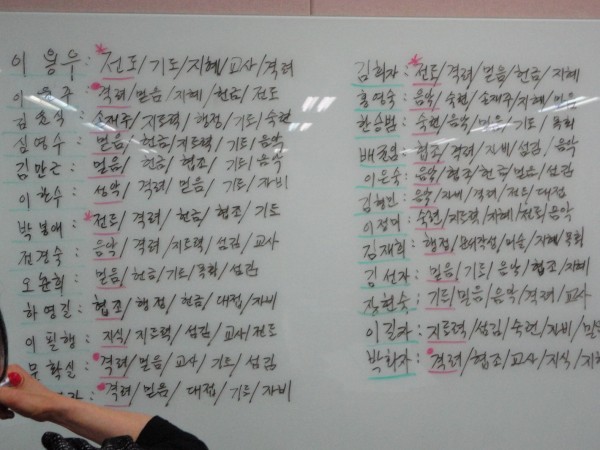 이용우: 전도/기도/지혜/교사/격려
이용주: 격려/믿음/지혜/헌금/전도
김춘식: 손재주/지도력/행정/기도/숙련
심연수: 믿음/헌금/지도력/기도/음악
김만근: 믿음/헌금/협조/기도/음악
이찬수: 음악/격려/믿음/기도/자비
박복애: 전도/격려/헌금/협조/기도
전경숙: 음악/격려/지도력/섬김/교사
오윤희: 믿음/헌금/기도/목회/섬김
하영길: 협조/행정/헌금/대접/자비
이필행: 지식/지도력/섬김/교사/전도
학실: 격려/믿음/교사/기도/섬김
격려/믿음/대접/기도/자비
김희자: 전도/격려/믿음/헌금/지혜
홍영숙: 음악/숙련/손재주/지혜/믿음
한승범: 숙련/음악/믿음/기도/목회
배: 협조/격려/자비/섬김/음악
이은숙: 음악/협조/헌금/믿음/섬김
김형민: 음악/자비/격려/전도/대접
이정미: 숙련/지도력/지혜/전도/음악
김재희: 행정/지혜/목회
김선자: 믿음/기도/음악/협조/지혜
장현숙: 기도/믿음/음악/격려/교사
이길자: 지도력/섬김/숙련/자비/믿음
박화자: 격려/협조/교사/지식/지혜